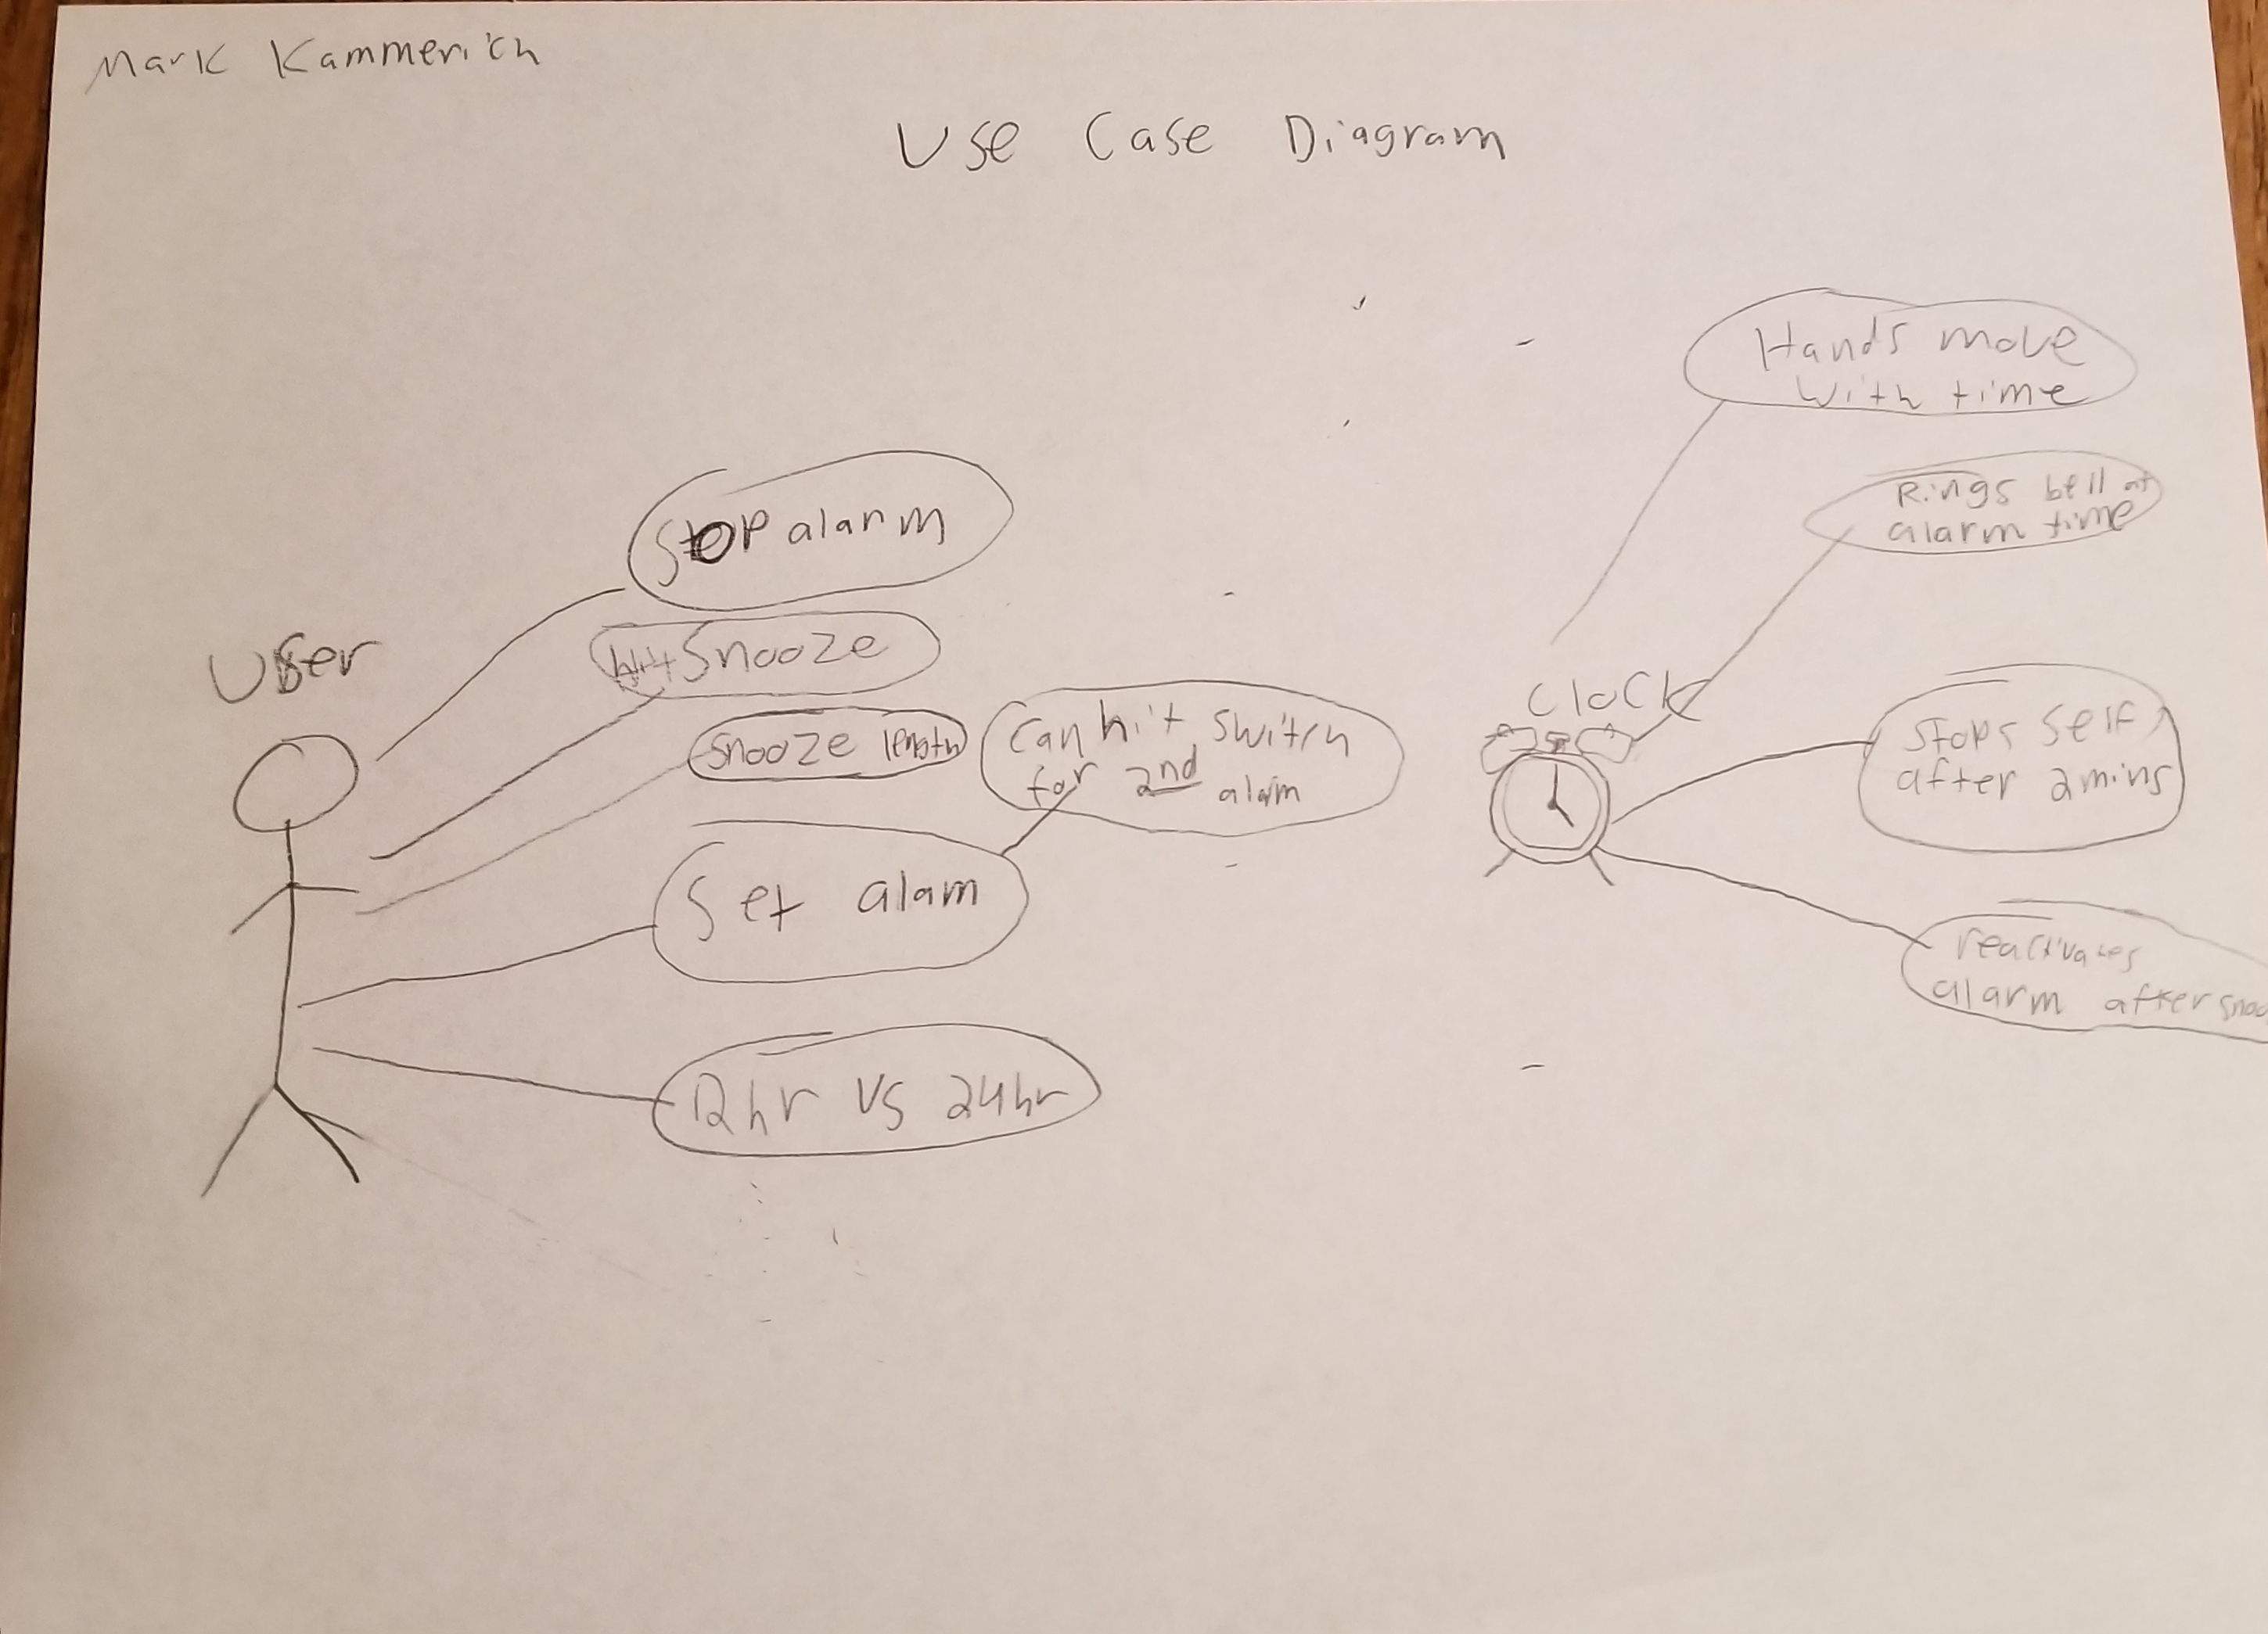 Mark Kammerich
Use Case Diagram
User
Stop alarm
hit Snooze
Snooze length
Can hit switch
for 2nd alarm
Set alam
12hr VS 24hr
Clock
Hands move
with time
Rings bell at
alarm time
Stops self
after 2mins
reactivates
alarm after snoo